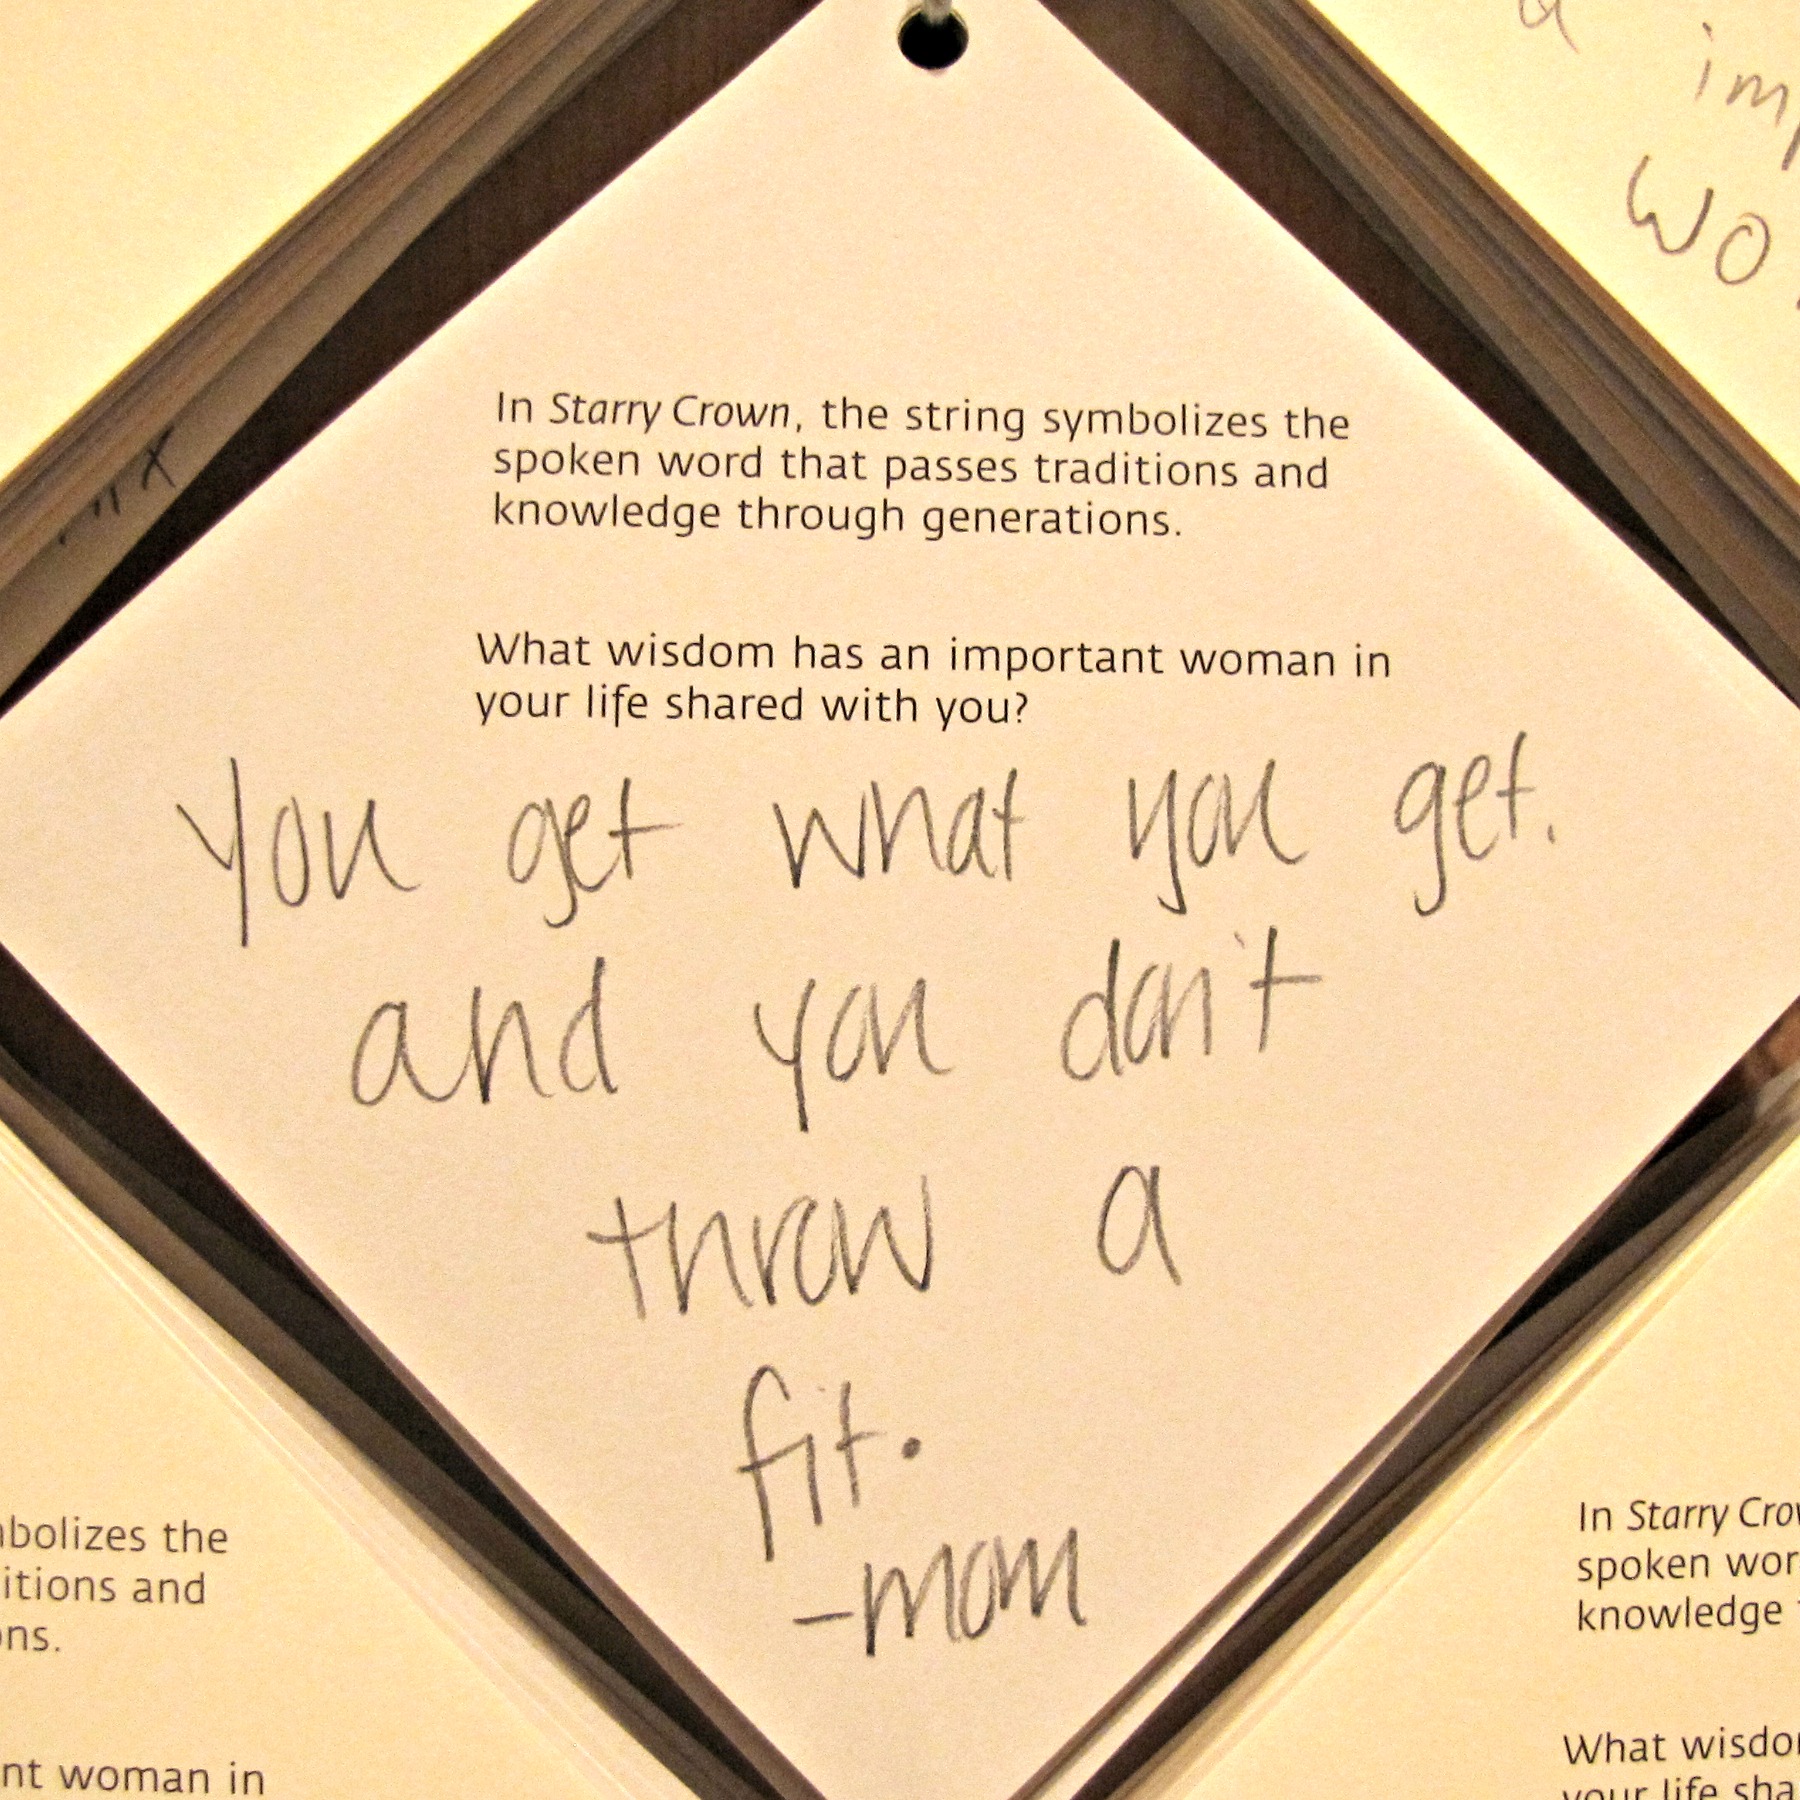 a
WO
In Starry Crown, the string symbolizes the
spoken word that passes traditions and
knowledge through generations.
What wisdom has an important woman in
your life shared with you?
you get what you get.
and you don't
throw a
fit.
-mom
the
and
woman in
In Starry
spoken
knowledge
What
your life